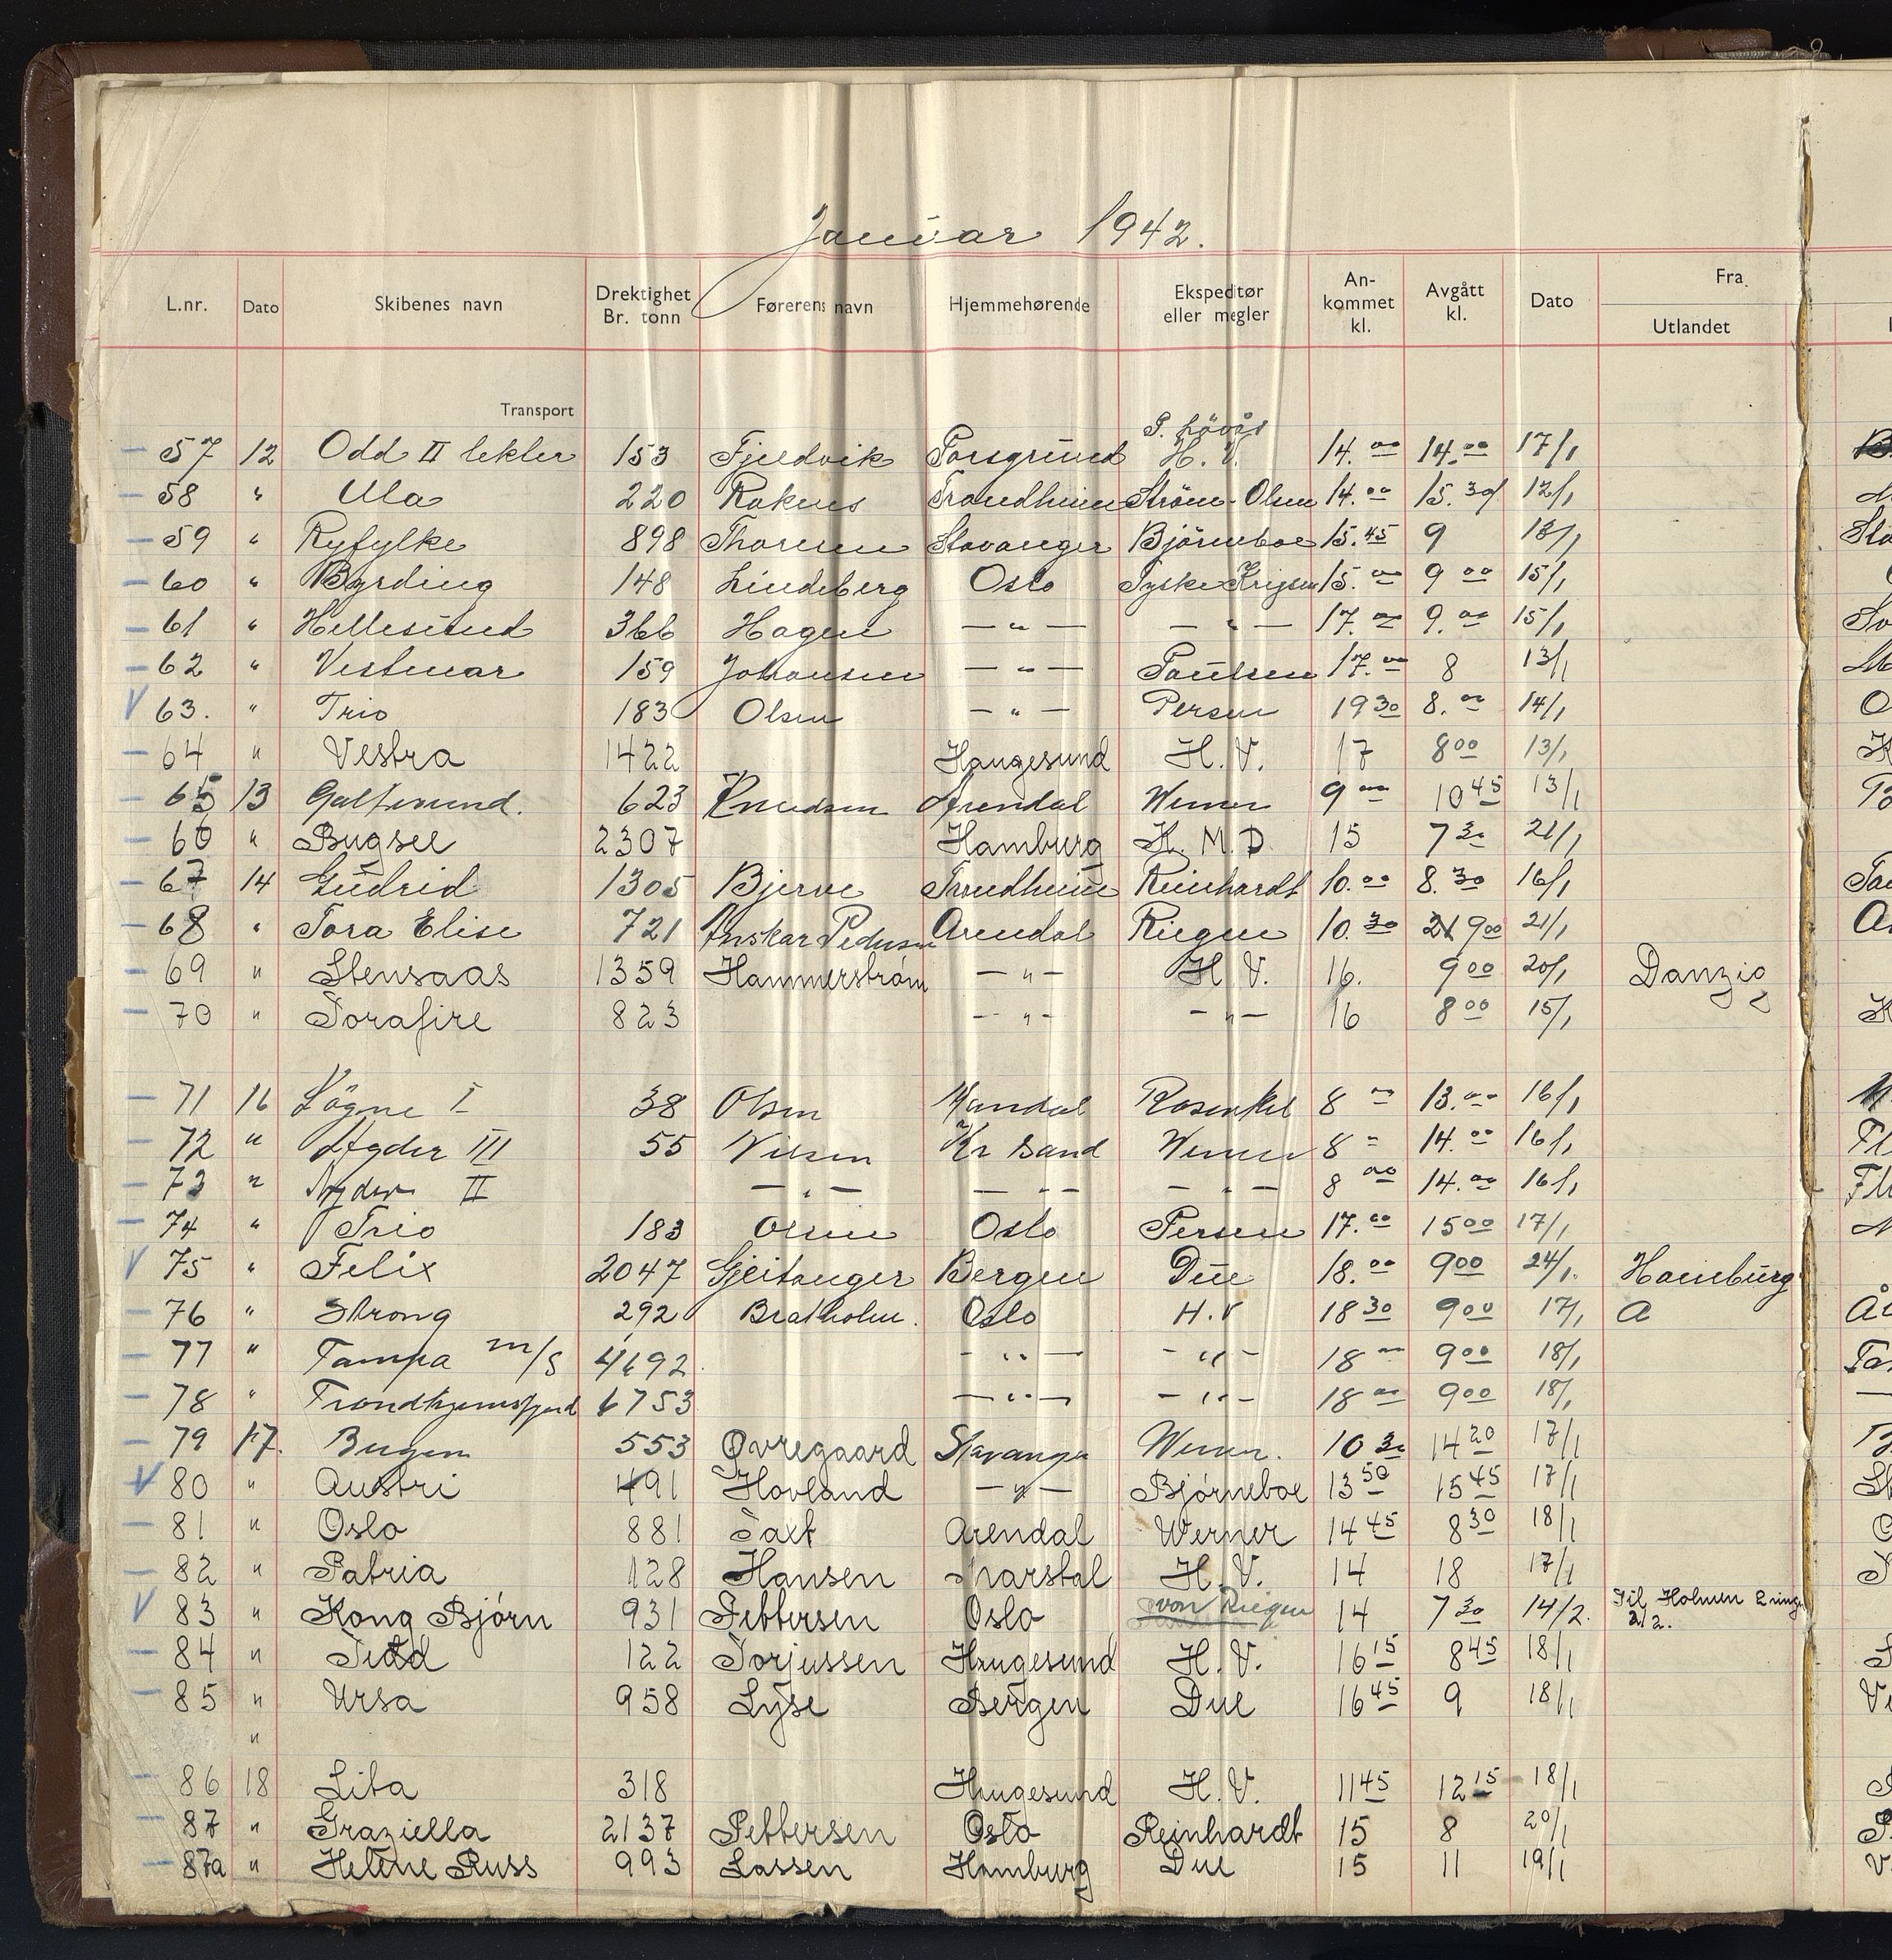 Januar 1942.
L.nr. Dato Skibenes navn Drektighet Br. tonn Førerens navn Hjemmehørende Ekspeditør eller megler An-kommet kl. Avgått kl. Dato Fra
Utlandet
Transport
57 12 Odd II lekter 153 Fjeldvik Porsgrund H. V. 14.00 14.00 17/1
58 " Ula 220 Raknes Trondheim Strøm-Olsen 14.00 15.30 12/1
59 " Ryfylke 898 Thorsen Stavanger Björneboe 15.45 9 13/1
60 " Byrding 148 Lindeberg Oslo Tyske Krigsm 15.00 9 00 15/1
61 " Hellesund 366 Hagen — " — — " — 17.00 9.00 15/1
62 " Vestmar 159 Johansen — " — Paulsen 17.00 8 13/1
63. " Trio 183 Olsen — " — Persen 19 30 8.00 14/1
64 " Vestra 1422 Haugesund H. V. 17 8 00 13/1
65 13 Galtesund. 623 Knudsen Arendal Werner 9 00 10 45 13/1
66 " Bugsee 2307 Hamburg K. M. D. 15 7 30 21/1
67 14 Gudrid 1305 Bjerve Trondheim Reinhardt 10.00 8.30 16/1
68 " Tora Elise 721 Anskar Pedersen Arendal Riegen 10.30 9 00 21/1
69 " Stensaas 1359 Hammerstrøm — " — H. V. 16. 9 00 20/1 Danzig
70 " Torafire 823 — " — — " — 16 8 00 15/1
71 16 Søgne I 38 Olsen Mandal Rosenkil 8 00 13.00 16/1
72 " Agder III 55 Nilsen Kr Sand Werner 8 00 14.00 16/1
73 " Agder II — " — — " — — " — 8 00 14.00 16/1
74 " Trio 183 Olsen Oslo Persen 17.00 15 00 17/1
75 " Felix 2047 Gjeitanger Bergen Due 18.00 9 00 24/1. Hamburg
76 " Strong 292 Bratholm. Oslo H.V 18 30 9 00 17/1 A
77 " Tampa m/s 4692. — " — — " — 18 00 9 00 18/1
78 " Trondhjemsfjord 6753 — " — — " — 18 00 9 00 18/1
79 17. Bugen 553 Øvregaard Stavanger Werner. 10 30 14 20 17/1
80 " Austri 491 Hovland — " — Bjørneboe 13 50 15 45 17/1
81 " Oslo 881 Taxt Arendal Werner 14 45 8 30 18/1
82 " Patria 128 Hansen Marstal H. V. 14 18 17/1
83 " Kong Bjørn 931 Pettersen Oslo von Riegen 14 7 30 14/2. Til Holmen 2 ring.
2/2.
84 " 122 Torjussen Haugesund H. V. 16 15 8 45 18/1
85 " Ursa 958 Lyse Bergen Due 16 45 9 18/1
"
86 18 Lita 318 Haugesund H. V. 11 45 12 15 18/1
87 " Graziella 2137 Pettersen Oslo Reinhardt 15 8 20/1
87a " Helene Russ 993 Lassen Hamburg Due 15 11 19/1